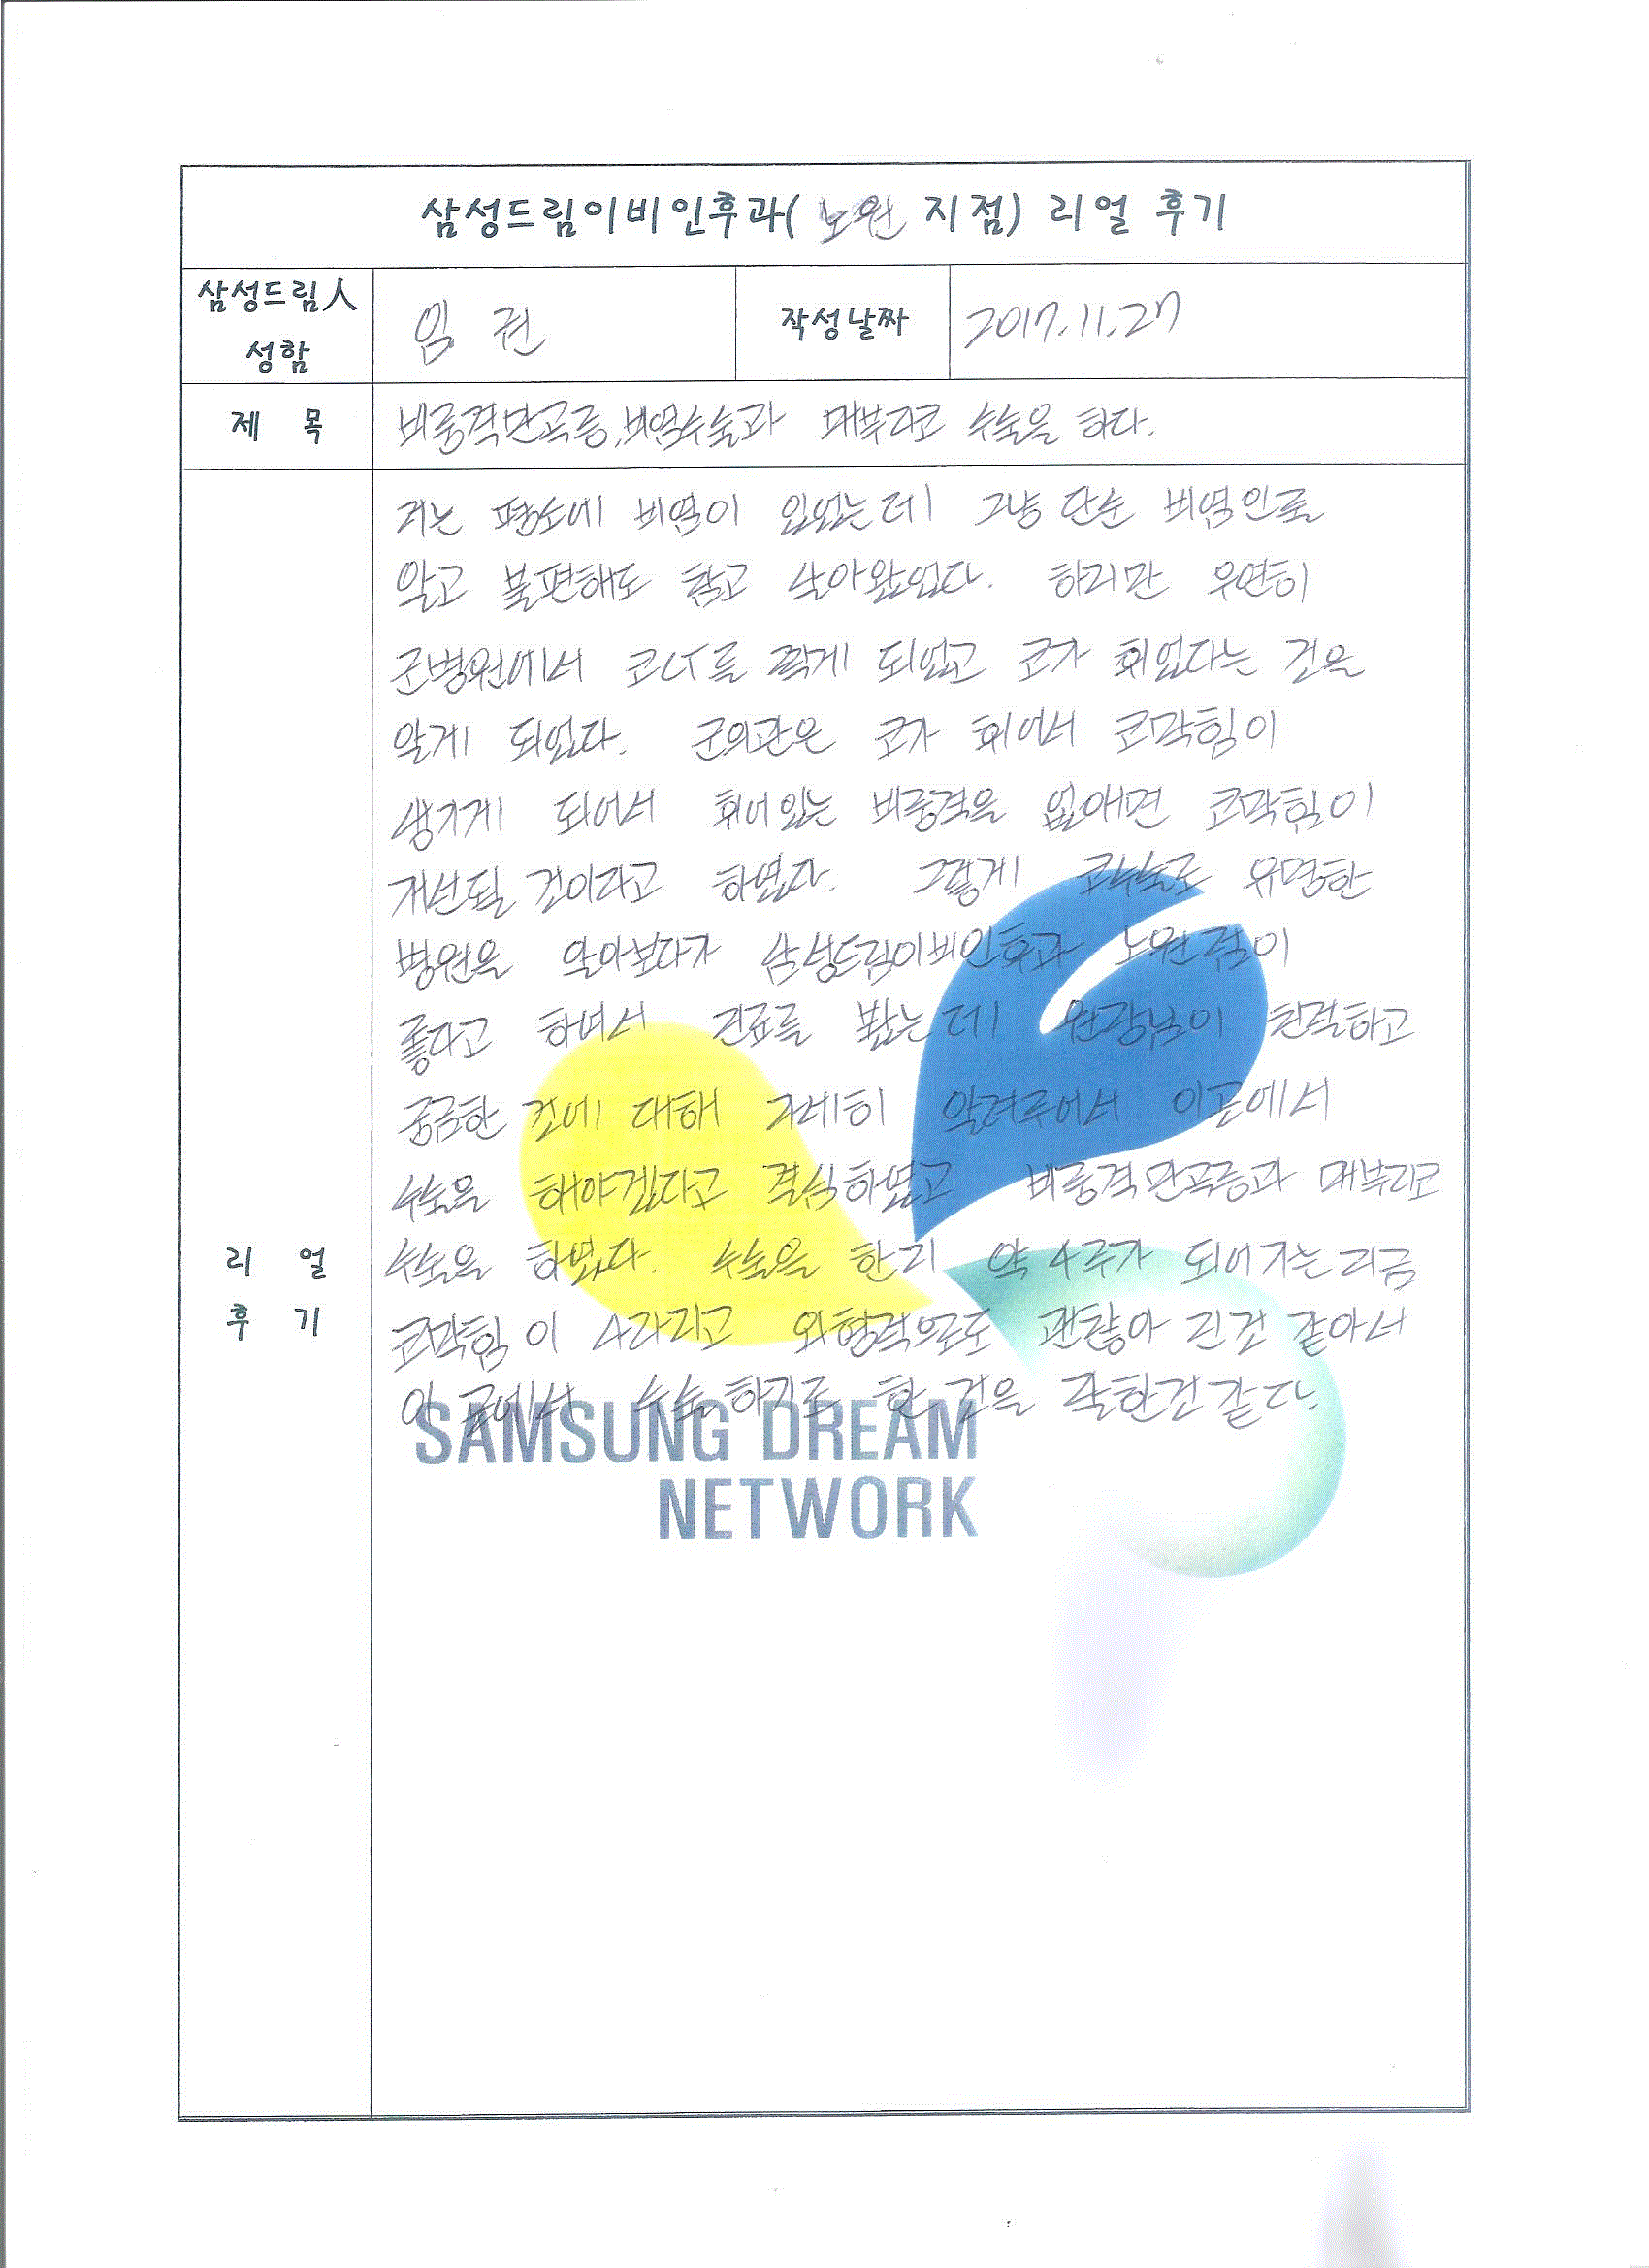 삼성드림이비인후과( 노원 지점) 리얼 후기
삼성드림人 성함
임 권
작성날짜
2017.11.27
제 목
비중격만곡증,비염수술과 매부리코 수술을 하다.
리 얼 후 기
저는 평소에 비염이 있었는데 그냥 단순 비염인로
알고 불편해도 참고 살아왔었다. 하지만 우연히
군병원에서 코CT를 찍게 되었고 코가 휘었다는 것을
알게 되었다. 군의관은 코가 휘어서 코막힘이
생기게 되어서 휘어있는 비중격을 없애면 코막힘이
개선될 것이라고 하였다. 그렇게 코수술로 유명한
병원을 알아보다가 삼성드림이비인후과 노원점이
좋다고 하여서 진료를 봤는데 원장님이 친절하고
궁금한 것에 대해 자세히 알려주어서 이곳에서
수술을 해야겠다고 결심하였고 비중격만곡증과 매부리코
수술을 하였다. 수술을 한지 약 4주가 되어가는 지금
코막힘이 사라지고 외형적으로도 괜찮아 진것 같아서
이 곳에서 수술하기로 한 것은 잘한것같다.
SAMSUNG DREAM
NETWORK